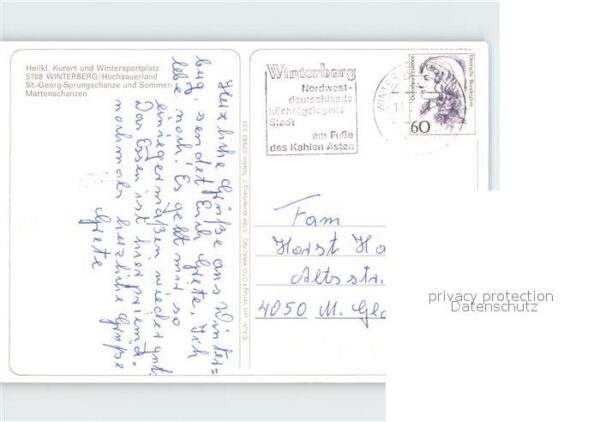 Heilkl. Kurort und Wintersportplatz
5788 WINTERBERG/Hochsauerland
St.-Georg-Sprungschanze und Sommer-
Mattenschanzen
Herzliche Grüße aus Winter=
berg, sendet Euch Grete. Ich
lebe noch. Es geht mir so
einigermaßen wieder gut.
Das Essen ist hier prima.
nochmals herzliche Grüße
Grete
5788 Winterberg 2 Telefon
Winterberg
Nordwest-
deutschlands
höchstgelegene
Stadt
am Fuße
des Kahlen Asten
WINTER
11
Deutsche Bundespost
60
Fam
Horst Ha
Altstr.
4050 M. Gla
privacy protection
Datenschutz